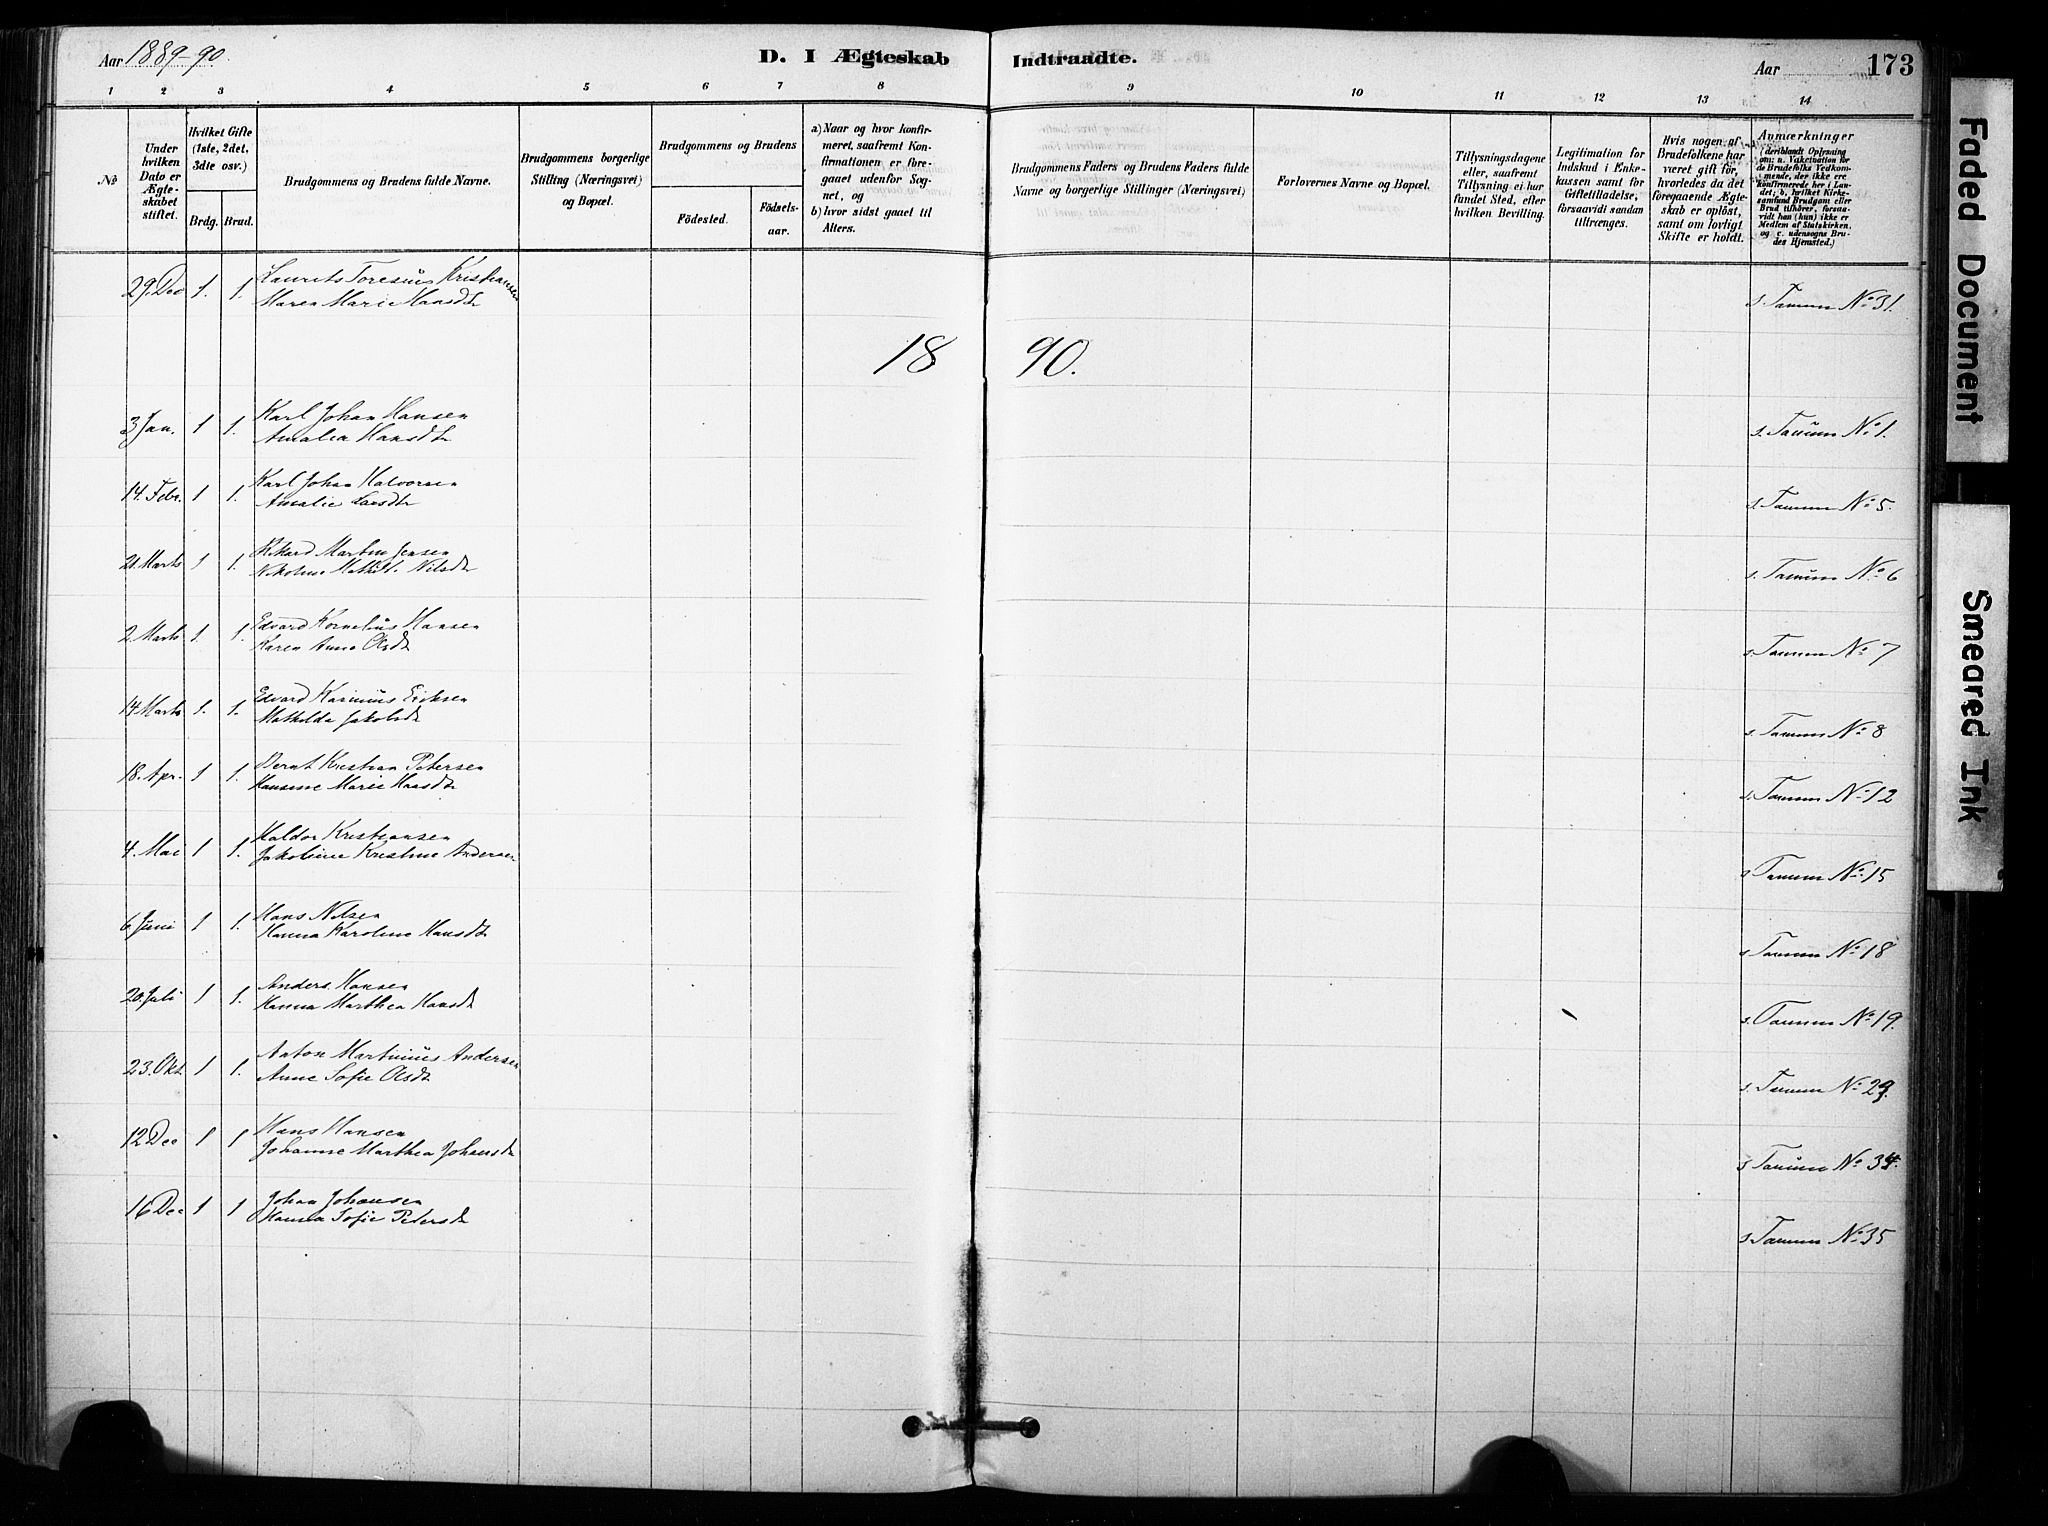 Aar 1889-90.
D. I Ægteskab Indtraadte.
Aar
173
1 2 3 4 5 6 7 8 9 10 11 12 13 14
No
Under hvilken Dato er Ægteskabet stiftet.
Hvilket Gifte (1ste, 2det, 3die osv.)
Brdg. Brud.
Brudgommens og Brudens fulde Navne.
Brudgommens borgerlige Stilling (Næringsvei) og Bopæl.
Brudgommens og Brudens
Födested.
Födsels-aar.
a) Naar og hvor konfirmeret, saafremt Konfirmationen er foregaaet udenfor Sognet, og
b) hvor sidst gaaet til Alters.
Brudgommens Faders og Brudens Faders fulde Navne og borgerlige Stillinger (Næringsvei)
Forlovernes Navne og Bopæl.
Tillysningsdagene eller, saafremt Tillysning ei har fundet Sted, efter hvilken Bevilling.
Legitimation for Indskud i Enkekassen samt for Giftetilladelse, forsaavidt saadan tiltrænges.
Hvis nogen af Brudefolkene har været gift før, hvorledes da det foregaaende Ægteskab er opløst, samt om lovligt Skifte er holdt.
Anmærkninger (deriblandt Oplysning om: a. Vakcination for de Brudefolks Vedkommende, der ikke ere konfirmerede her i Landet; b. hvilket Kirkesamfund Brudgom eller Brud tilhører, forsaavidt han (hun) ikke er Medlem af Statskirken, og c. udensogns Brudes Hjemsted.)
29. Dec 1. 1. Laurits Toresius Kristiansen
Maren Marie Hansdtr
s. Tanum No 31.
18 90.
3 Jan. 1 1. Karl Johan Hansen
Amalia Hansdtr
s. Tanum No 1.
14. Febr. 1 1. Karl Johan Halvorsen
Amalie Larsdtr
s. Tanum No 5.
Marts 1 1. Rikard Martin Jensen
Nikoline Mathil. Nilsdtr
s. Tanum No 6
2. Marts 1. 1. Edvard Kornelius Hansen
Karen Anne Olsdtr
s. Tanum No 7
14 Marts 1. 1. Edvard Karinius Eriksen
Mathilda Jakobsdtr
s. Tanum No 8
18. Apr. 1 1. Bernt Kristian Petersen
Hansine Marie Hansdtr
s. Tanum No 12
4. Mai 1 1. Haldor Kristiansen
Jakobine Kristine Andersen
s Tanum No 15
6 Juni 1 1. Hans Nilsen
Hanna Karoline Hansdtr
s Tanum No 18
20. Juli 1 1. Anders Hansen
Hanna Marthea Hansdtr
s. Tanum No 19.
23. Okt. 1 1. Anton Martinius Andersen
Anne Sofie Olsdtr
s. Tanum No 29.
12 Dec 1 1 Hans Hansen
Johanne Marthea Johansdtr
s Tanum No 34.
16 Dec 1 1 Johan Johansen
Hanna Sofie Petersdtr
s. Tanum No 35
Faded Document
Smeared Ink